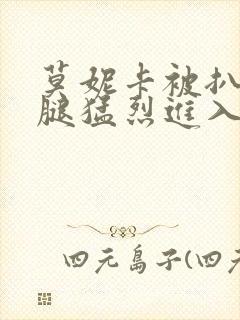 莫妮卡被扒
腿猛烈进入
四元岛子(四元